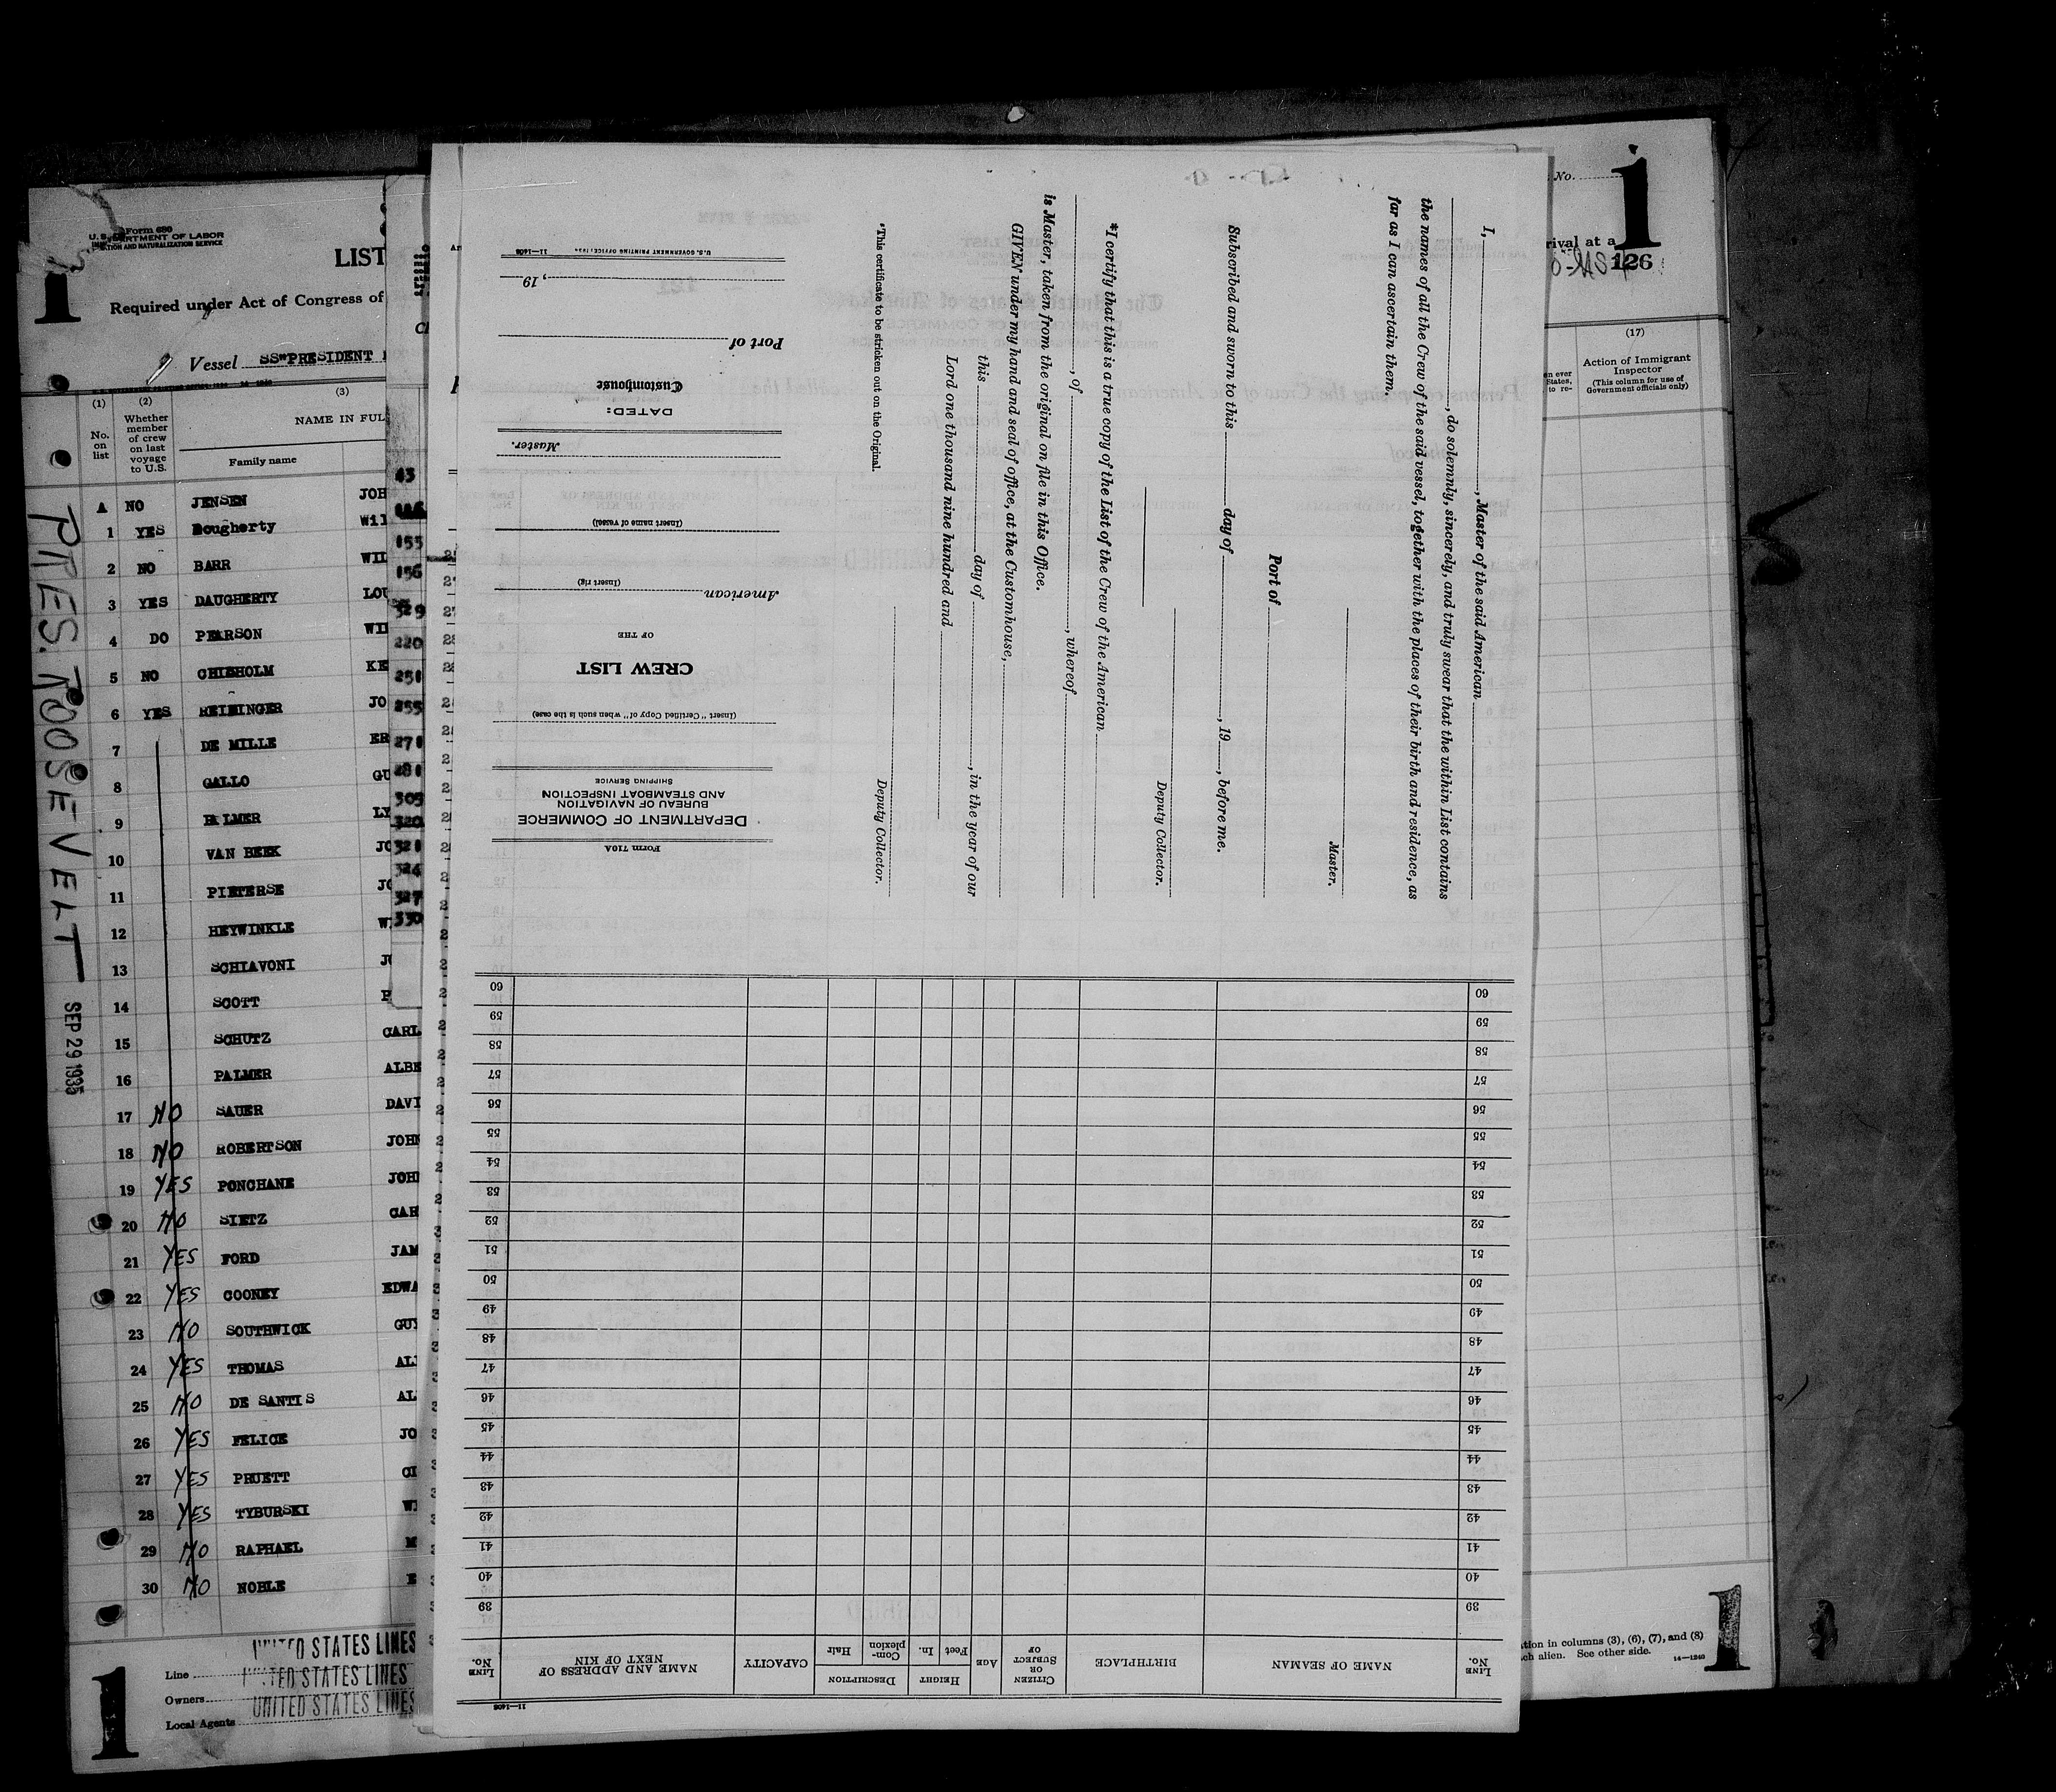 Form 680
U. S. DEPARTMENT OF LABOR
IMMIGRATION AND NATURALIZATION SERVICE
1
LIST
Required under Act of Congress of
Vessel SS"PRESIDENT
(1) (2) (3)
No. on list
Whether member of crew on last voyage to U.S.
NAME IN FUL
Family name
A NO JENSEN JOH
1 YES Dougherty Wil
2 NO BARR WIL
3 YES DAUGHERTY LOU
4 DO PEARSON WIL
5 NO CHISHOLM KE
6 YES REISINGER JO
7 DE MILLE ER
8 GALLO GU
9 PALMER LY
10 VAN BEEK JO
11 PIETERSE JO
12 HEYWINKLE W
13 SCHIAVONI JO
14 SCOTT
15 SCHUTZ CARL
16 PALMER ALBE
17 NO SAUER DAVI
18 NO ROBERTSON JOHN
19 YES PONCHANE JOH
20 NO SIETZ CAR
21 YES FORD JAM
22 YES COONEY EDWA
23 NO SOUTHWICK GUY
24 YES THOMAS AL
25 NO DE SANTIS AL
26 YES FELICE JO
27 YES PRUETT
28 YES TYBURSKI
29 NO RAPHAEL M
30 NO NOBLE E
PRES. ROOSEVELT
SEP 29 1935
Line UNITED STATES LINES
Owners UNITED STATES LINES
Local Agents UNITED STATES LINES
1
43
155
156
329
220
251
255
271
281
305
320
321
324
327
330
Form 710A
DEPARTMENT OF COMMERCE
BUREAU OF NAVIGATION
AND STEAMBOAT INSPECTION
SHIPPING SERVICE
(Insert "Certified Copy of" when such is the case)
CREW LIST
OF THE
American
(Insert rig)
(Insert name of vessel)
Master.
DATED:
Customhouse
Port of
, 19
U.S. GOVERNMENT PRINTING OFFICE: 11—1408
I, , Master of the said American
, do solemnly, sincerely, and truly swear that the within List contains
the names of all the Crew of the said vessel, together with the places of their birth and residence, as
far as I can ascertain them.
Master.
Port of
Subscribed and sworn to this day of , 19 , before me.
Deputy Collector.
*I certify that this is a true copy of the List of the Crew of the American
, of , whereof
is Master, taken from the original on file in this Office.
GIVEN under my hand and seal of office, at the Customhouse,
this day of , in the year of our
Lord one thousand nine hundred and
Deputy Collector.
*This certificate to be stricken out on the Original.
11—1408
LINE No.
NAME OF SEAMAN
BIRTHPLACE
CITIZEN OR SUBJECT OF
AGE
HEIGHT
Feet In.
DESCRIPTION
Complexion Hair
CAPACITY
NAME AND ADDRESS OF NEXT OF KIN
LINE No.
39 39
40 40
41 41
42 42
43 43
44 44
45 45
46 46
47 47
48 48
49 49
50 50
51 51
52 52
53 53
54 54
55 55
56 56
57 57
58 58
59 59
60 60
No.
1
rival at a
126
(17)
Action of Immigrant Inspector
(This column for use of Government officials only)
en ever
States,
to re-
tion in columns (3), (6), (7), and (8)
ch alien. See other side.
14—1240
1